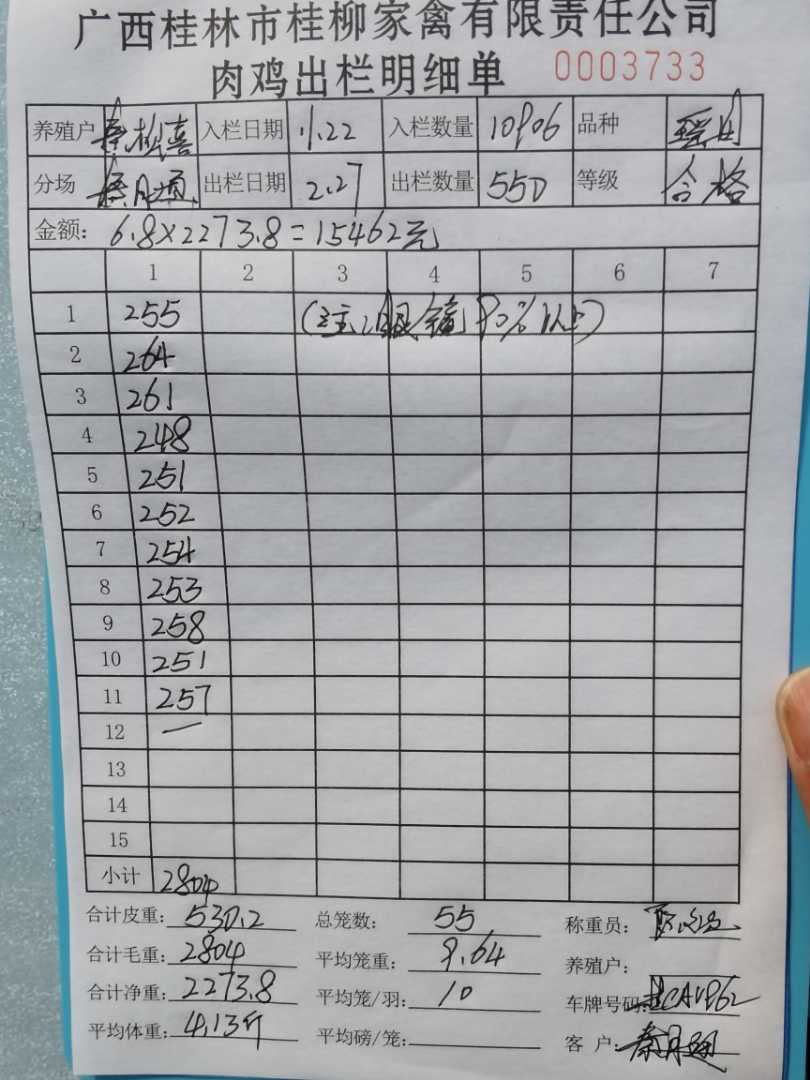 广西桂林市桂柳家禽有限责任公司
肉鸡出栏明细单 0003733
养殖户 入栏日期 11.22 入栏数量 10906 品种
分场 出栏日期 2.27 出栏数量 550 等级 合格
金额: 6.8×2273.8=15462元
1 2 3 4 5 6 7
1 255 (注:眼镜90%以上)
2 264
3 261
4 248
5 251
6 252
7 254
8 253
9 258
10 251
11 257
12 一
13
14
15
小计 2804
合计皮重: 530.2 总笼数: 55 称重员:
合计毛重: 2804 平均笼重: 9.64 养殖户:
合计净重: 2273.8 平均笼/羽: 10 车牌号码:
平均体重: 4.13斤 平均磅/笼: 客户: